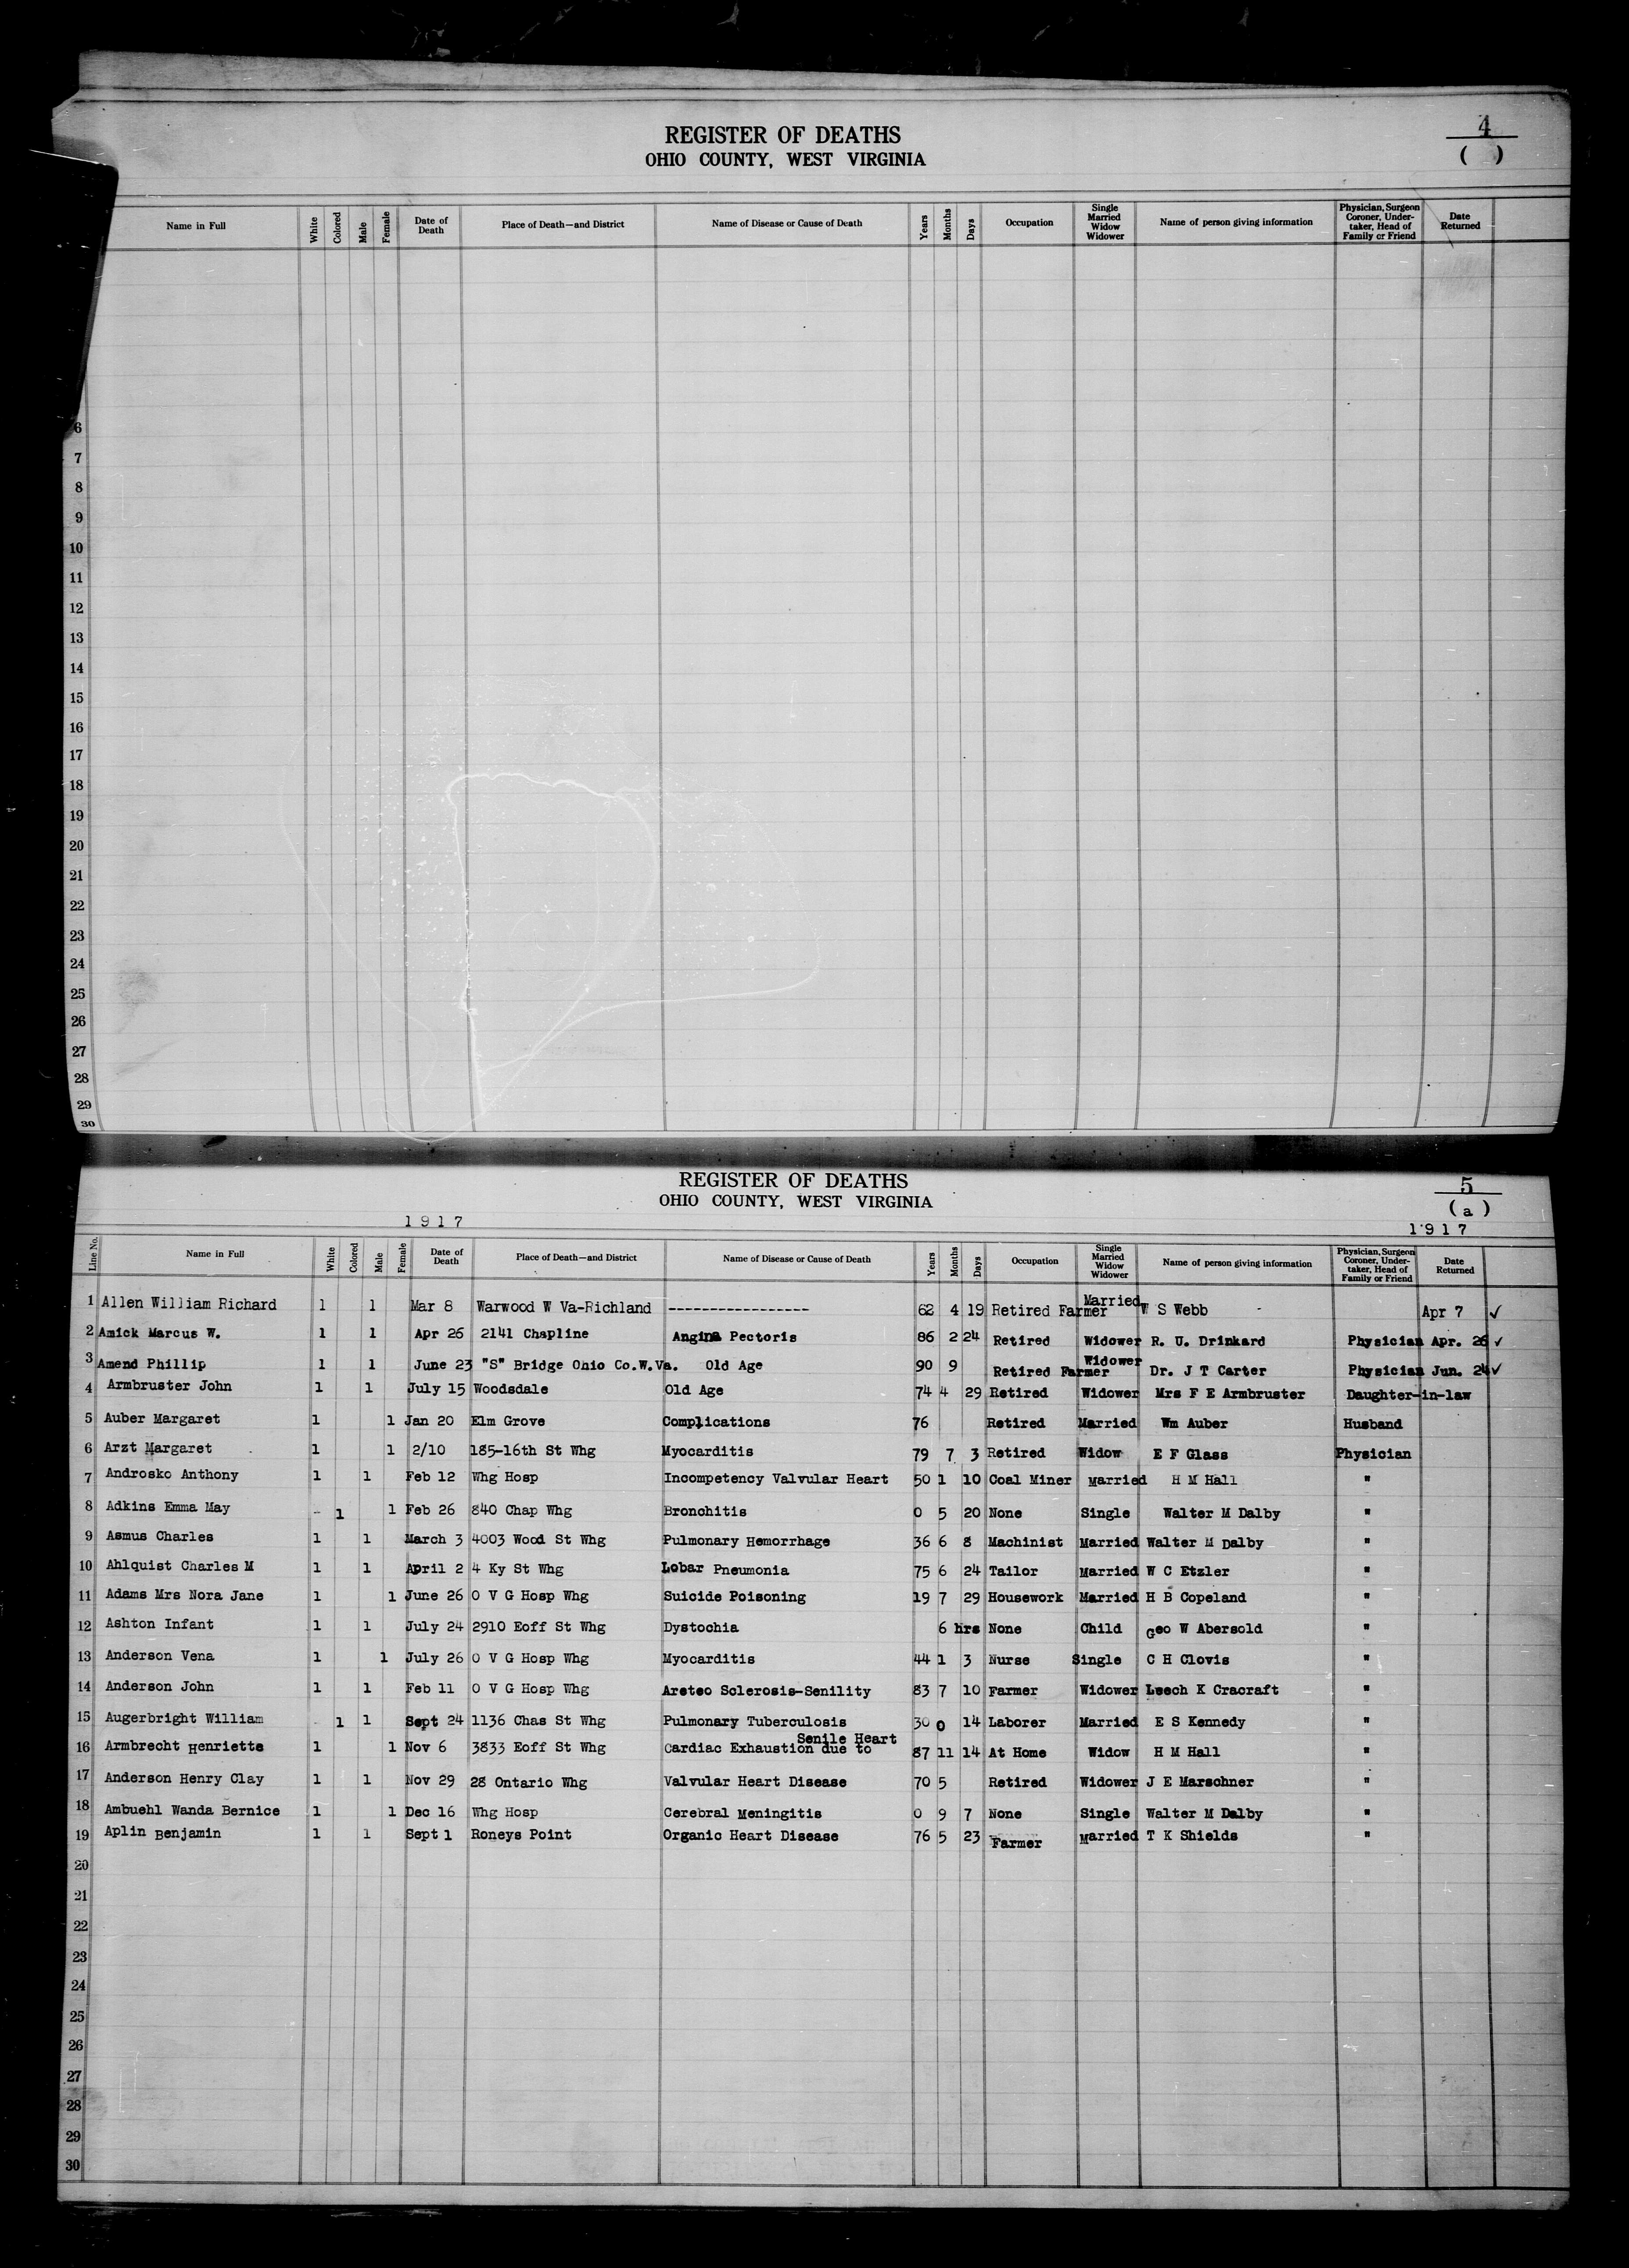 REGISTER OF DEATHS
OHIO COUNTY, WEST VIRGINIA
4
( )
Name in Full White Colored Male Female Date of Death Place of Death—and District Name of Disease or Cause of Death Years Months Days Occupation Single Married Widow Widower Name of person giving information Physician, Surgeon Coroner, Undertaker, Head of Family or Friend Date Returned
6
7
8
9
10
11
12
13
14
15
16
17
18
19
20
21
22
23
24
25
26
27
28
29
30
REGISTER OF DEATHS
OHIO COUNTY, WEST VIRGINIA
5
(a)
1917 1917
Line No. Name in Full White Colored Male Female Date of Death Place of Death—and District Name of Disease or Cause of Death Years Months Days Occupation Single Married Widow Widower Name of person giving information Physician, Surgeon Coroner, Undertaker, Head of Family or Friend Date Returned
1 Allen William Richard 1 1 Mar 8 Warwood W Va-Richland ----------------- 62 4 19 Retired Farmer Married W S Webb Apr 7 ✓
2 Amick Marcus W. 1 1 Apr 26 2141 Chapline Angina Pectoris 86 2 24 Retired Widower R. U. Drinkard Physician Apr. 26 ✓
3 Amend Phillip 1 1 June 23 "S" Bridge Ohio Co.W.Va. Old Age 90 9 Retired Farmer Widower Dr. J T Carter Physician Jun. 24 ✓
4 Armbruster John 1 1 July 15 Woodsdale Old Age 74 4 29 Retired Widower Mrs F E Armbruster Daughter-in-law
5 Auber Margaret 1 1 Jan 20 Elm Grove Complications 76 Retired Married Wm Auber Husband
6 Arzt Margaret 1 1 2/10 185-16th St Whg Myocarditis 79 7 3 Retired Widow E F Glass Physician
7 Androsko Anthony 1 1 Feb 12 Whg Hosp Incompetency Valvular Heart 50 1 10 Coal Miner Married H M Hall "
8 Adkins Emma May 1 1 Feb 26 840 Chap Whg Bronchitis 0 5 20 None Single Walter M Dalby "
9 Asmus Charles 1 1 March 3 4003 Wood St Whg Pulmonary Hemorrhage 36 6 8 Machinist Married Walter M Dalby "
10 Ahlquist Charles M 1 1 April 2 4 Ky St Whg Lobar Pneumonia 75 6 24 Tailor Married W C Etzler "
11 Adams Mrs Nora Jane 1 1 June 26 O V G Hosp Whg Suicide Poisoning 19 7 29 Housework Married H B Copeland "
12 Ashton Infant 1 1 July 24 2910 Eoff St Whg Dystochia 6 hrs None Child Geo W Abersold "
13 Anderson Vena 1 1 July 26 O V G Hosp Whg Myocarditis 44 1 3 Nurse Single C H Clovis "
14 Anderson John 1 1 Feb 11 O V G Hosp Whg Areteo Sclerosis-Senility 83 7 10 Farmer Widower Leech K Cracraft "
15 Augerbright William 1 1 Sept 24 1136 Chas St Whg Pulmonary Tuberculosis 30 0 14 Laborer Married E S Kennedy "
16 Armbrecht Henriette 1 1 Nov 6 3833 Eoff St Whg Cardiac Exhaustion due to Senile Heart 87 11 14 At Home Widow H M Hall "
17 Anderson Henry Clay 1 1 Nov 29 28 Ontario Whg Valvular Heart Disease 70 5 Retired Widower J E Marschner "
18 Ambuehl Wanda Bernice 1 1 Dec 16 Whg Hosp Cerebral Meningitis 0 9 7 None Single Walter M Dalby "
19 Aplin Benjamin 1 1 Sept 1 Roneys Point Organic Heart Disease 76 5 23 Farmer Married T K Shields "
20
21
22
23
24
25
26
27
28
29
30